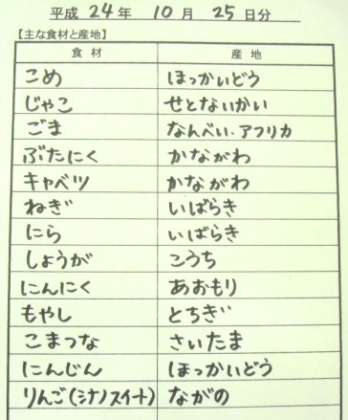 平成 24年 10月 25日分
【主な食材と産地】
食材 産地
こめ ほっかいどう
じゃこ せとないかい
ごま なんべい.アフリカ
ぶたにく かながわ
キャベツ かながわ
ねぎ いばらき
にら いばらき
しょうが こうち
にんにく あおもり
もやし とちぎ
こまつな さいたま
にんじん ほっかいどう
りんご(シナノスイート) ながの